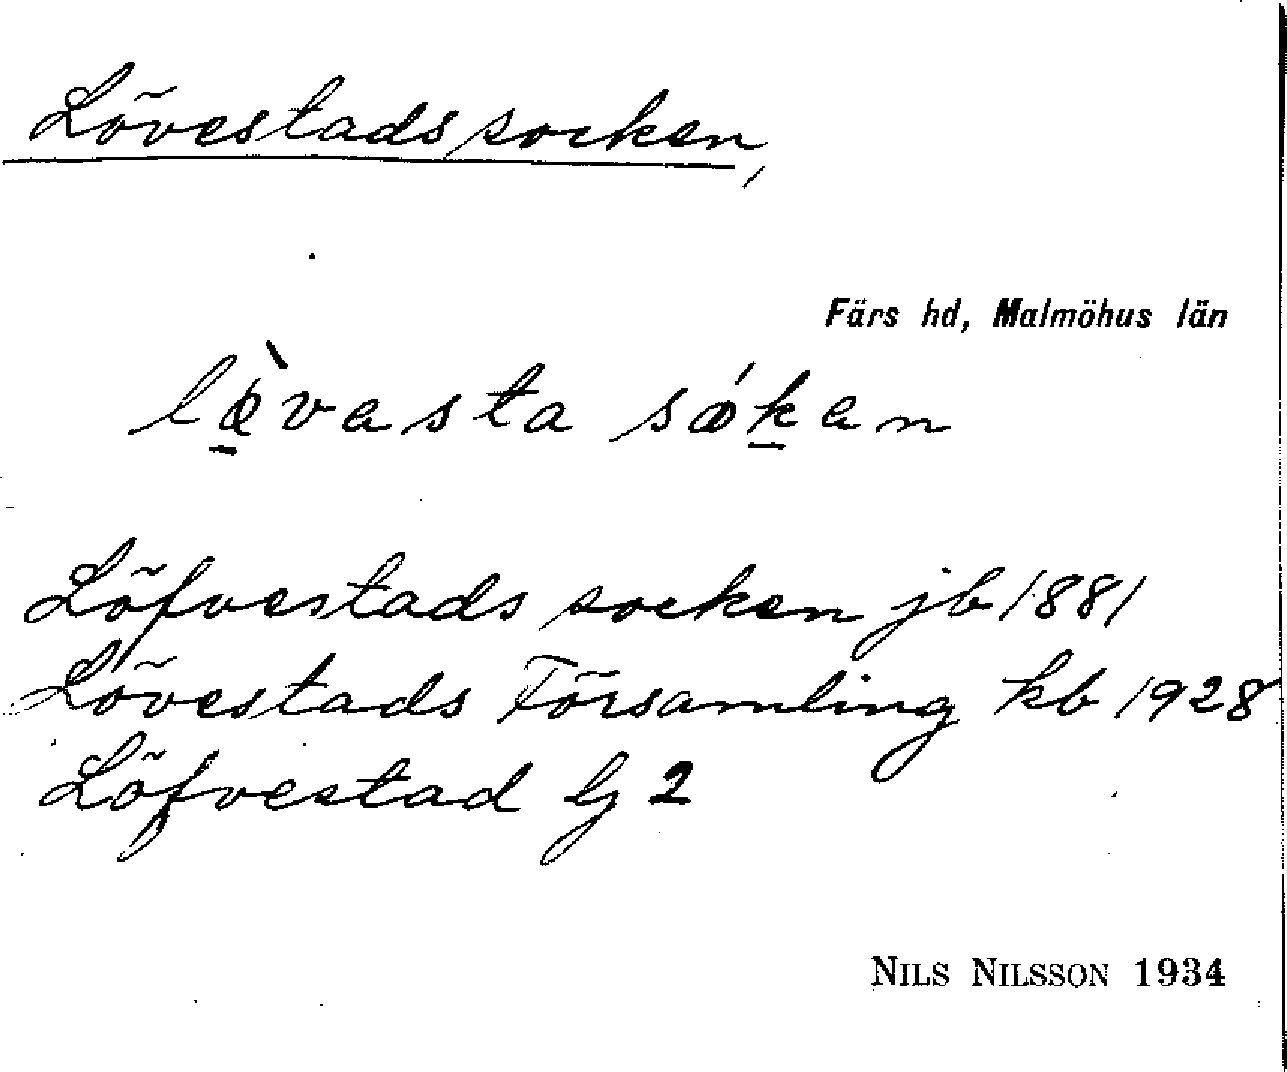 Lövestads socken,
Färs hd, Malmöhus län
lœ̀vasta sǿkan
Löfvestads socken jb 1881
Lövestads Församling kb 1928
Löfvestad G 2
NILS NILSSON 1934